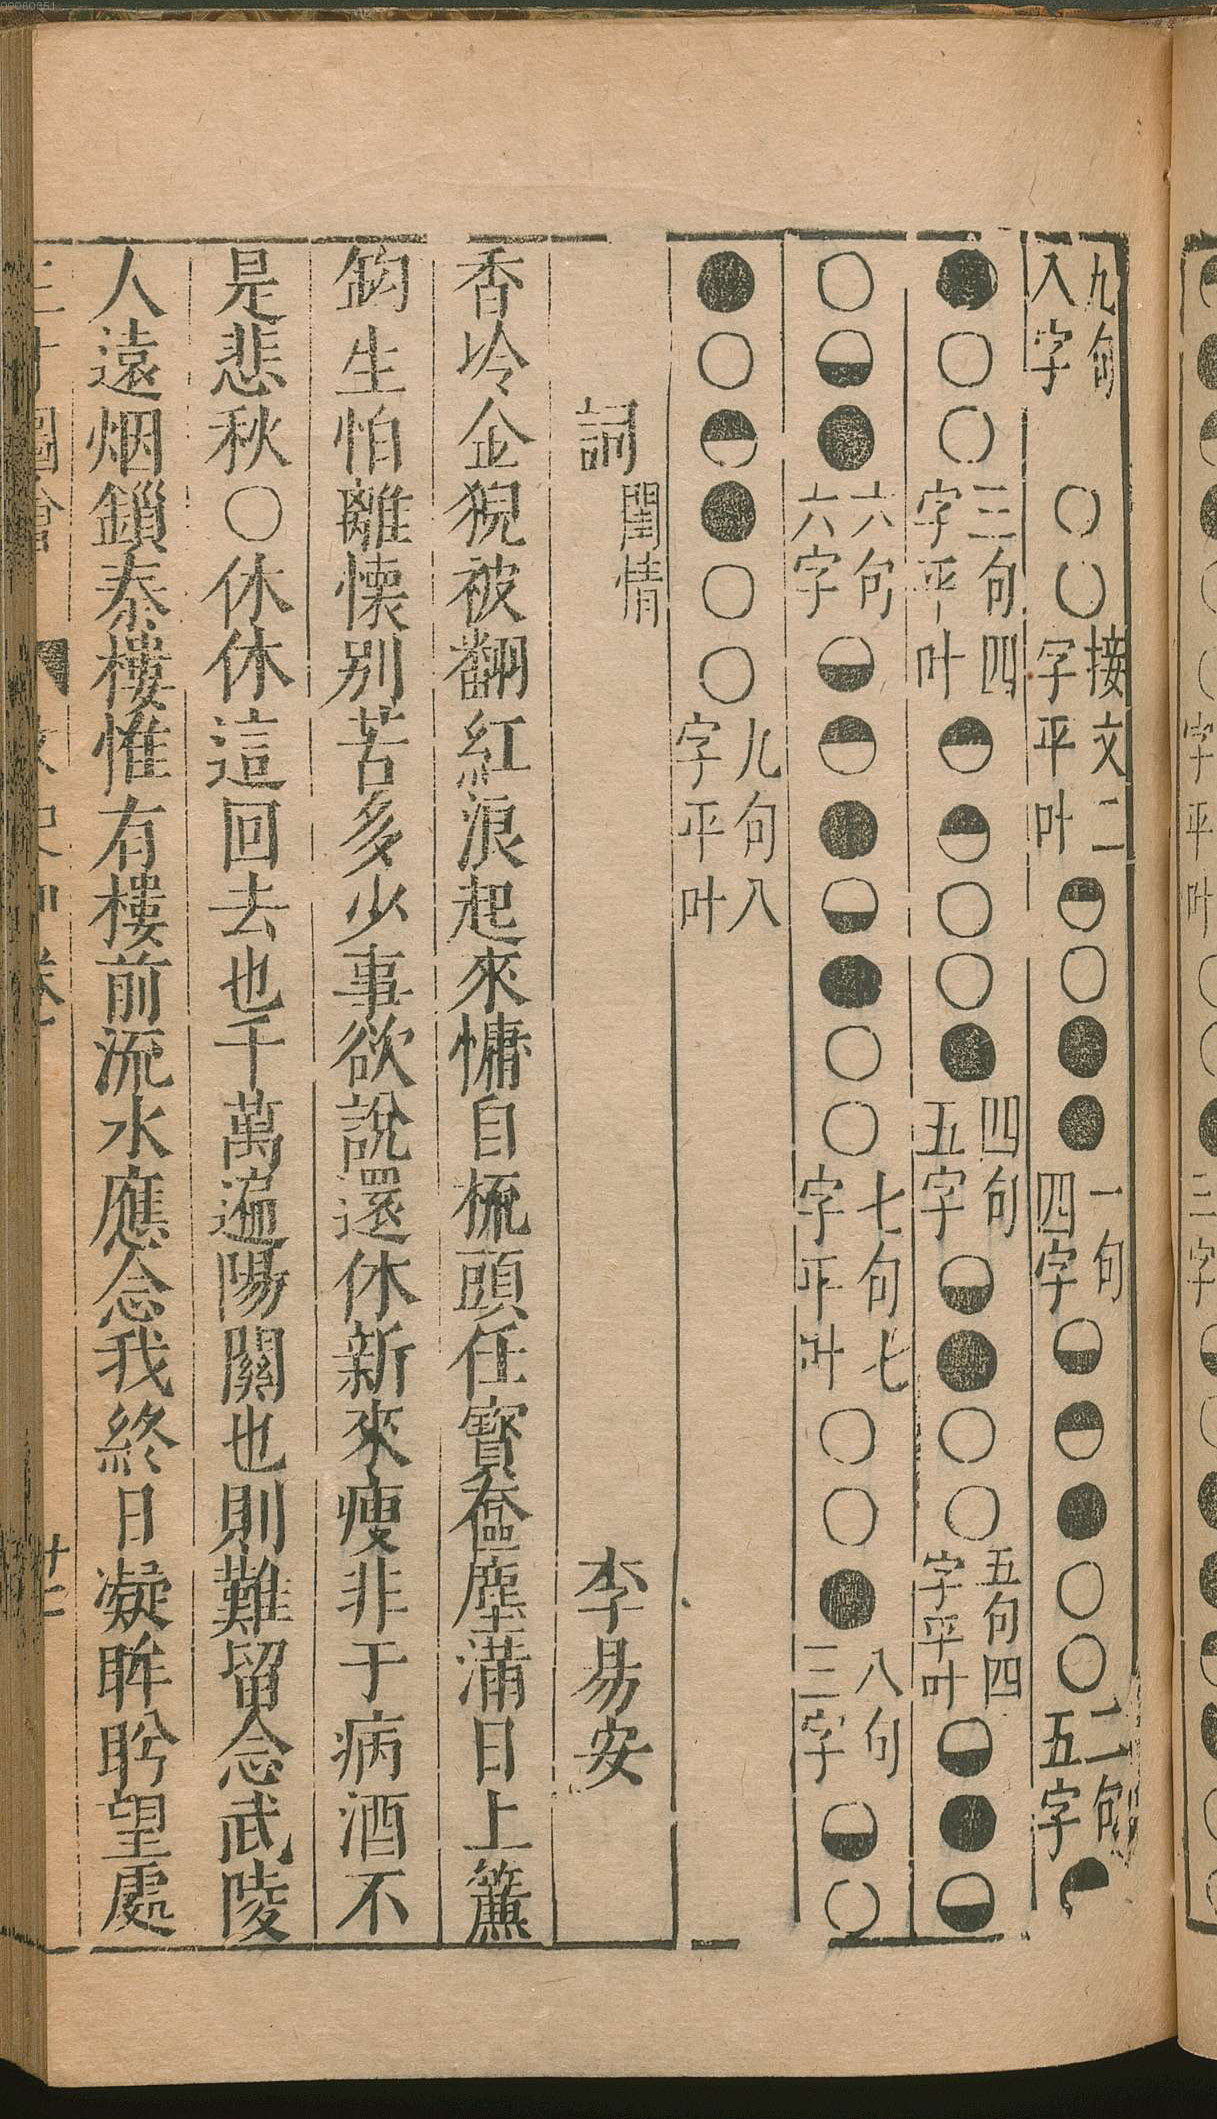 字平叶 三字
九句八字 ○○ 接文二字平叶 ◓○●● 一句四字 ◒◓●○○ 二句五字 ◐
●○○ 三句四字平叶 ◓◓○○● 四句五字 ◒●○○ 五句四字平叶 ◒●◒
○◒● 六句六字 ◒◓●◒●○○ 七句七字平叶 ○○● 八句三字 ◒○
●○◓●○○ 九句八字平叶
詞 閨情 李易安
香冷金猊被翻紅浪起來慵自梳頭任寶奩塵滿日上簾
鈎生怕離懷別苦多少事欲說還休新來瘦非于病酒不
是悲秋○休休這回去也千萬遍陽關也則難留念武陵
人遠烟鎖秦樓惟有樓前流水應念我終日凝眸盻望處
三才圖會